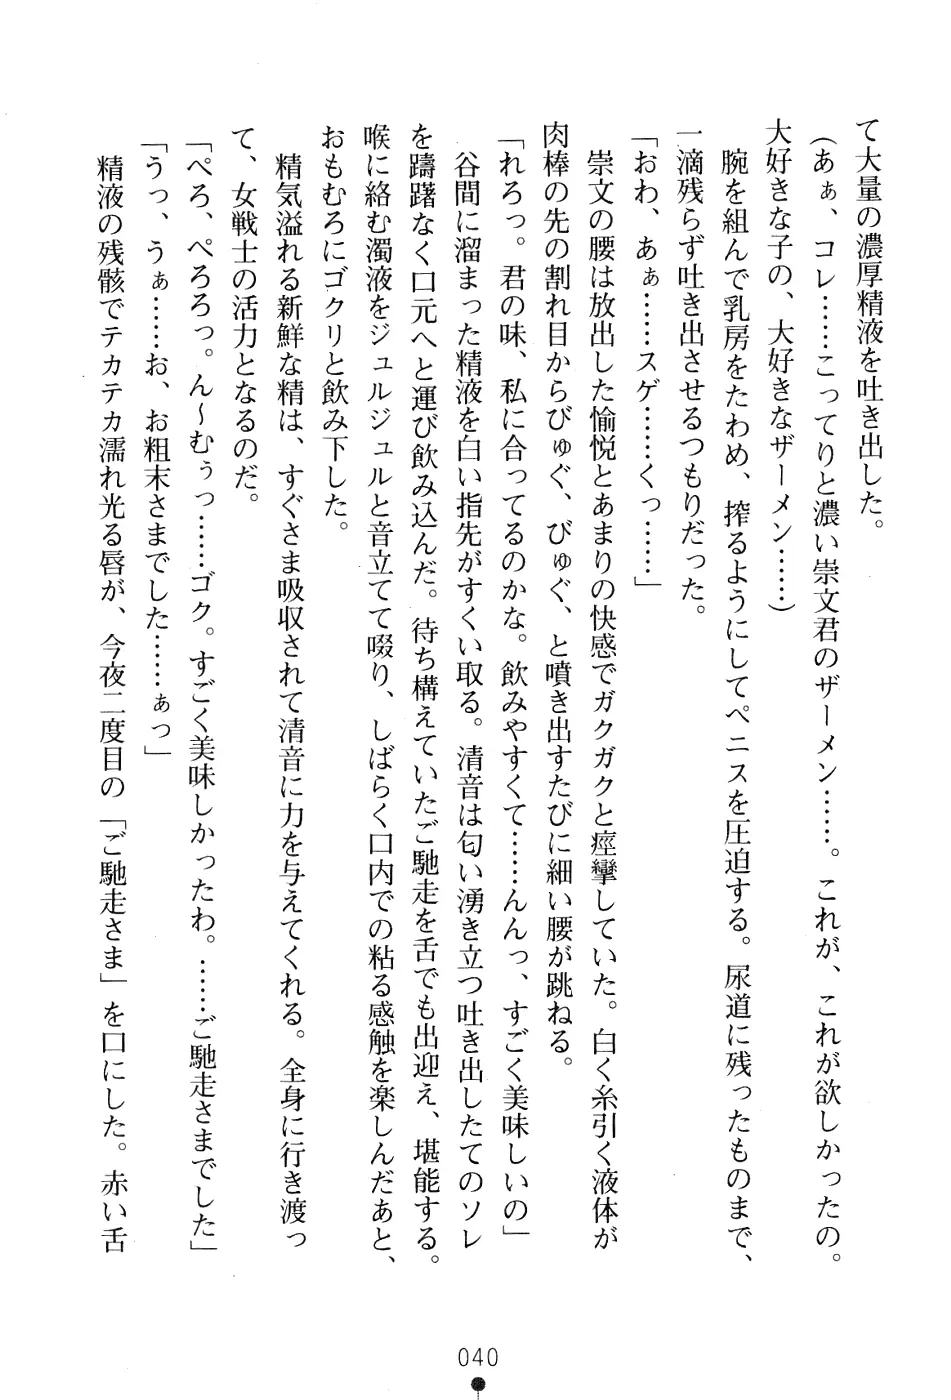 て大量の濃厚精液を吐き出した。
(あぁ、コレ……こってりと濃い崇文君のザーメン……。これが、これが欲しかったの。
大好きな子の、大好きなザーメン……)
腕を組んで乳房をたわめ、搾るようにしてペニスを圧迫する。尿道に残ったものまで、
一滴残らず吐き出させるつもりだった。
「おわ、あぁ……スゲ……くっ……」
崇文の腰は放出した愉悦とあまりの快感でガクガクと痙攣していた。白く糸引く液体が
肉棒の先の割れ目からびゅぐ、びゅぐ、と噴き出すたびに細い腰が跳ねる。
「れろっ。君の味、私に合ってるのかな。飲みやすくて……んんっ、すごく美味しいの」
谷間に溜まった精液を白い指先がすくい取る。清音は匂い湧き立つ吐き出したてのソレ
を躊躇なく口元へと運び飲み込んだ。待ち構えていたご馳走を舌でも出迎え、堪能する。
喉に絡む濁液をジュルジュルと音立てて啜り、しばらく口内での粘る感触を楽しんだあと、
おもむろにゴクリと飲み下した。
精気溢れる新鮮な精は、すぐさま吸収されて清音に力を与えてくれる。全身に行き渡っ
て、女戦士の活力となるのだ。
「ぺろ、ぺろろっ。ん～むぅっ……ゴク。すごく美味しかったわ。……ご馳走さまでした」
「うっ、うぁ……お、お粗末さまでした……ぁっ」
精液の残骸でテカテカ濡れ光る唇が、今夜二度目の「ご馳走さま」を口にした。赤い舌
040